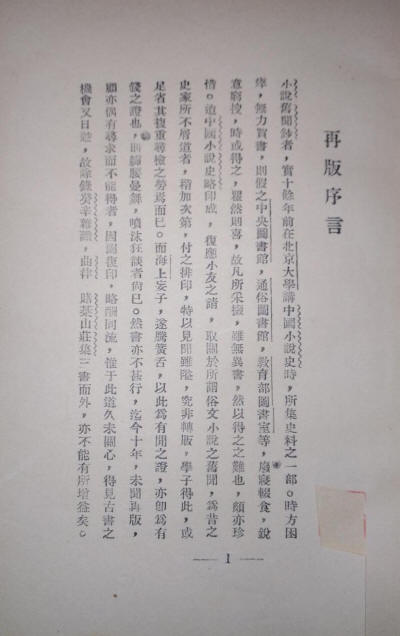 再版序言
小說舊聞鈔者，實十餘年前在北京大學講中國小說史時，所集史料之一部。時方困
瘁，無力買書，則假之中央圖書館，通俗圖書館，教育部圖書室等，廢寢輟食，銳
意窮搜，時或得之，瞿然則喜，故凡所采掇，雖無異書，然以得之之難也，頗亦珍
惜。迨中國小說史略印成，復應小友之請，取關於所謂俗文小說之舊聞，爲昔之
史家所不屑道者，稍加次第，付之排印，特以見聞雖隘，究非轉販，學子得此，或
足省其復重尋檢之勞焉而已。而海上妄子，遂騰簧舌，以此爲有閒之證，亦卽爲有
錢之證也，則腰曼舞，噴沫狂談者尙已。然書亦不甚行，迄今十年，未聞再版，
顧亦偶有尋求而不能得者，因圖復印，略酬同流，惟于此道久未關心，得見古書之
機會又日尟，故除錄癸辛雜識，曲律　賭棊山莊集三書而外，亦不能有所增益矣。
— 1 —